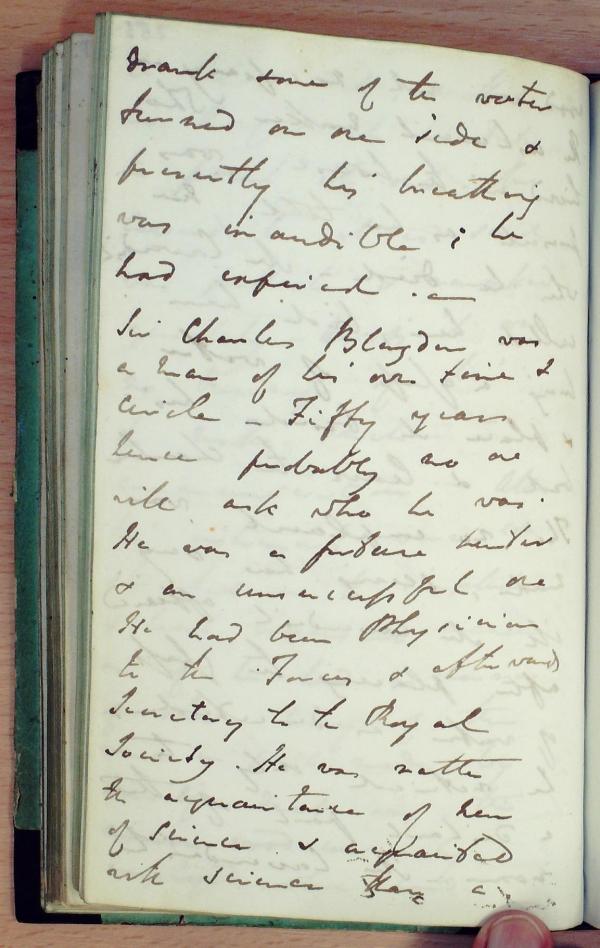 drank some of the water
turned on one side &
presently his breathing
was inaudible; he
had expired. —
Sir Charles Blagden was
a man of his own time &
circle — Fifty years
hence probably no one
will ask who he was.
He was a fortune hunter
& an unsuccessful one
He had been Physician
to the Forces & afterwards
Secretary to the Royal
Society. He was rather
the acquaintance of men
of science & acquainted
with science than a